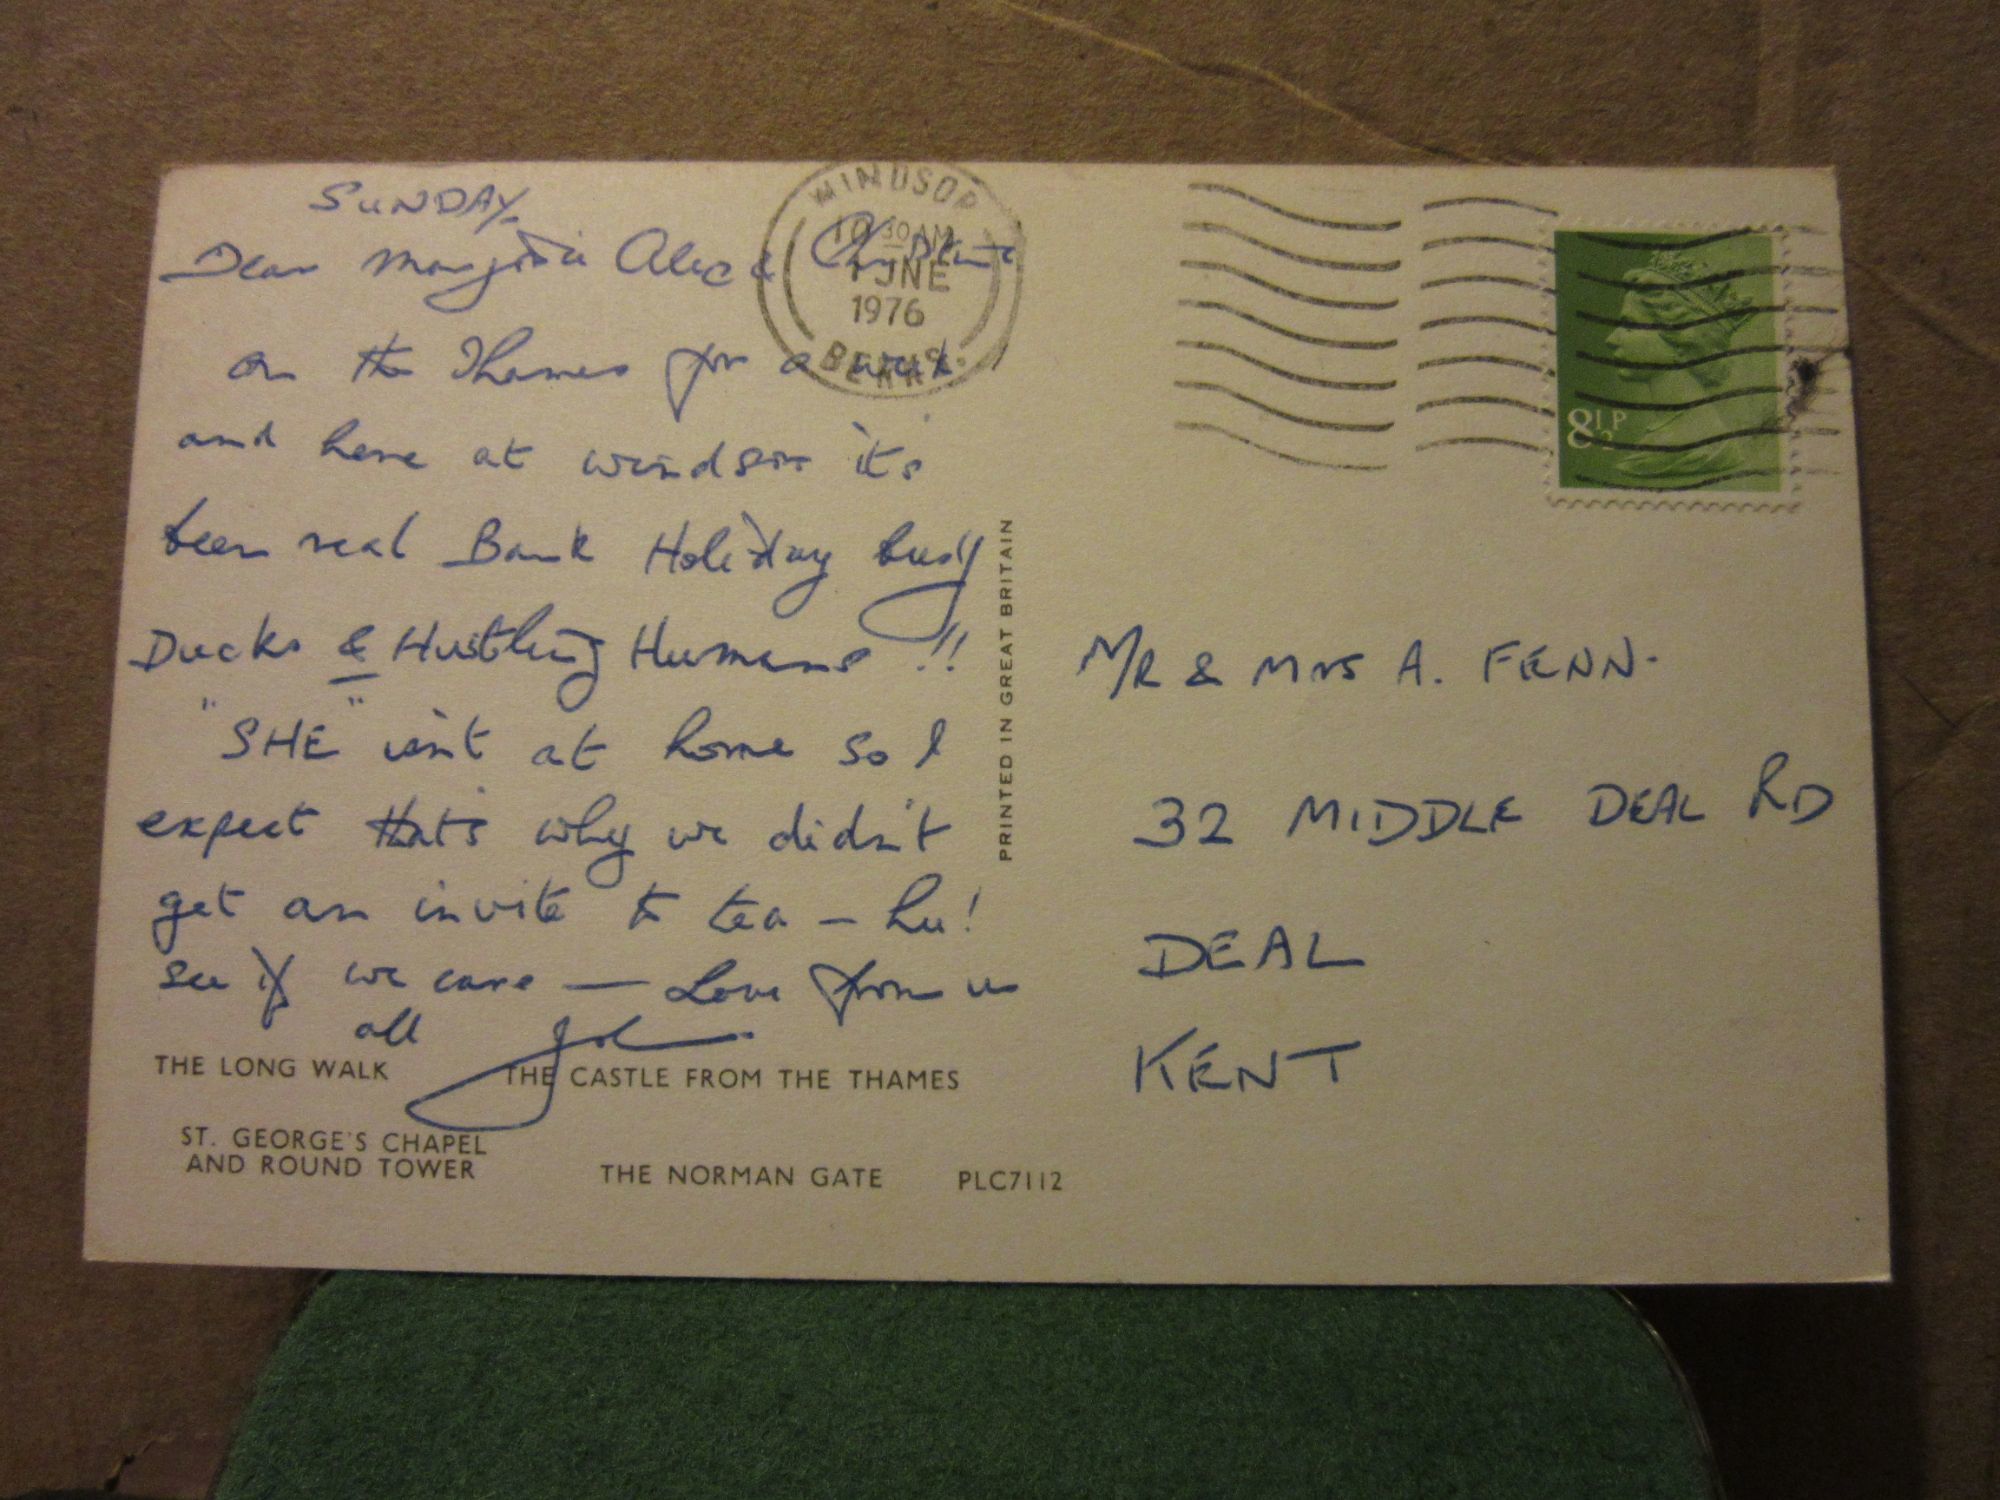 SUNDAY
Dear Marjorie Alec & Christine
on the Thames for a week
and here at Windsor it's
been real Bank Holiday busy
Ducks & Hustling Humans !!
"SHE" isn't at home so I
expect that's why we didn't
get an invite to tea – hu!
see if we care — Love from us
all John
THE LONG WALK
THE CASTLE FROM THE THAMES
ST. GEORGE'S CHAPEL
AND ROUND TOWER
THE NORMAN GATE
PLC7112
PRINTED IN GREAT BRITAIN
WINDSOR
10 30 AM
1 JNE
1976
BERKS.
8½P
MR & MRS A. FENN.
32 MIDDLE DEAL RD
DEAL
KENT